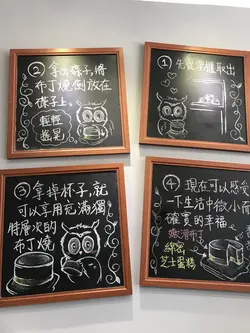 ① 先從取出
② 拿出碟子,將
布丁燒倒放在
碟子上。
輕輕
搖晃
③ 拿掉杯子,就
可以享用充滿獨
特層次的
布丁燒。
④ 現在可以感受
一下生活中微小而
確實的幸福
嫩滑布丁
綿密
芝士蛋糕